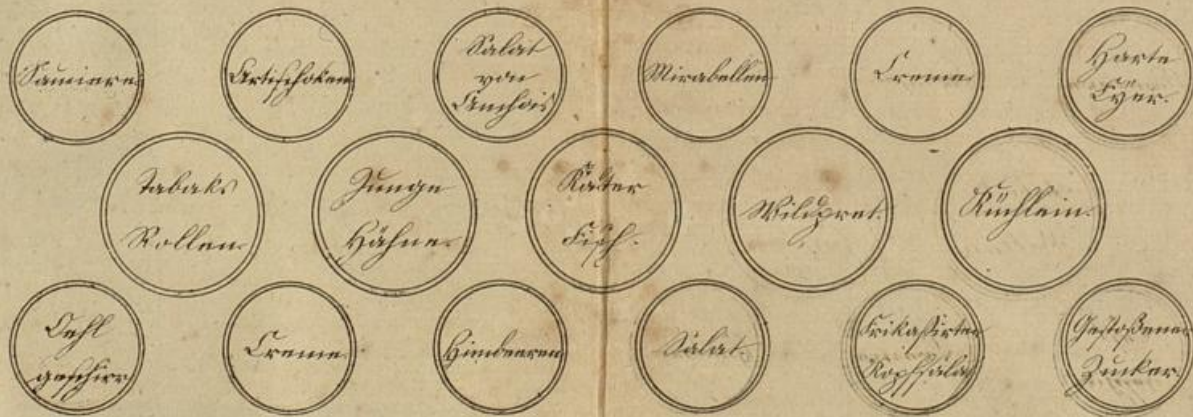 Sauciere.
Artischoken
Salat
von
Anchois
Mirabellen
Creme.
Harte
Eyer.
Tabaks
Rollen.
Junge
Hähne.
Kalter
Fisch.
Wildpret.
Küchlein.
Oehl
geschirr
Creme.
Himbeeren
Salat.
Frikaßirter
Kopfsalat
Gestoßener
Zucker.